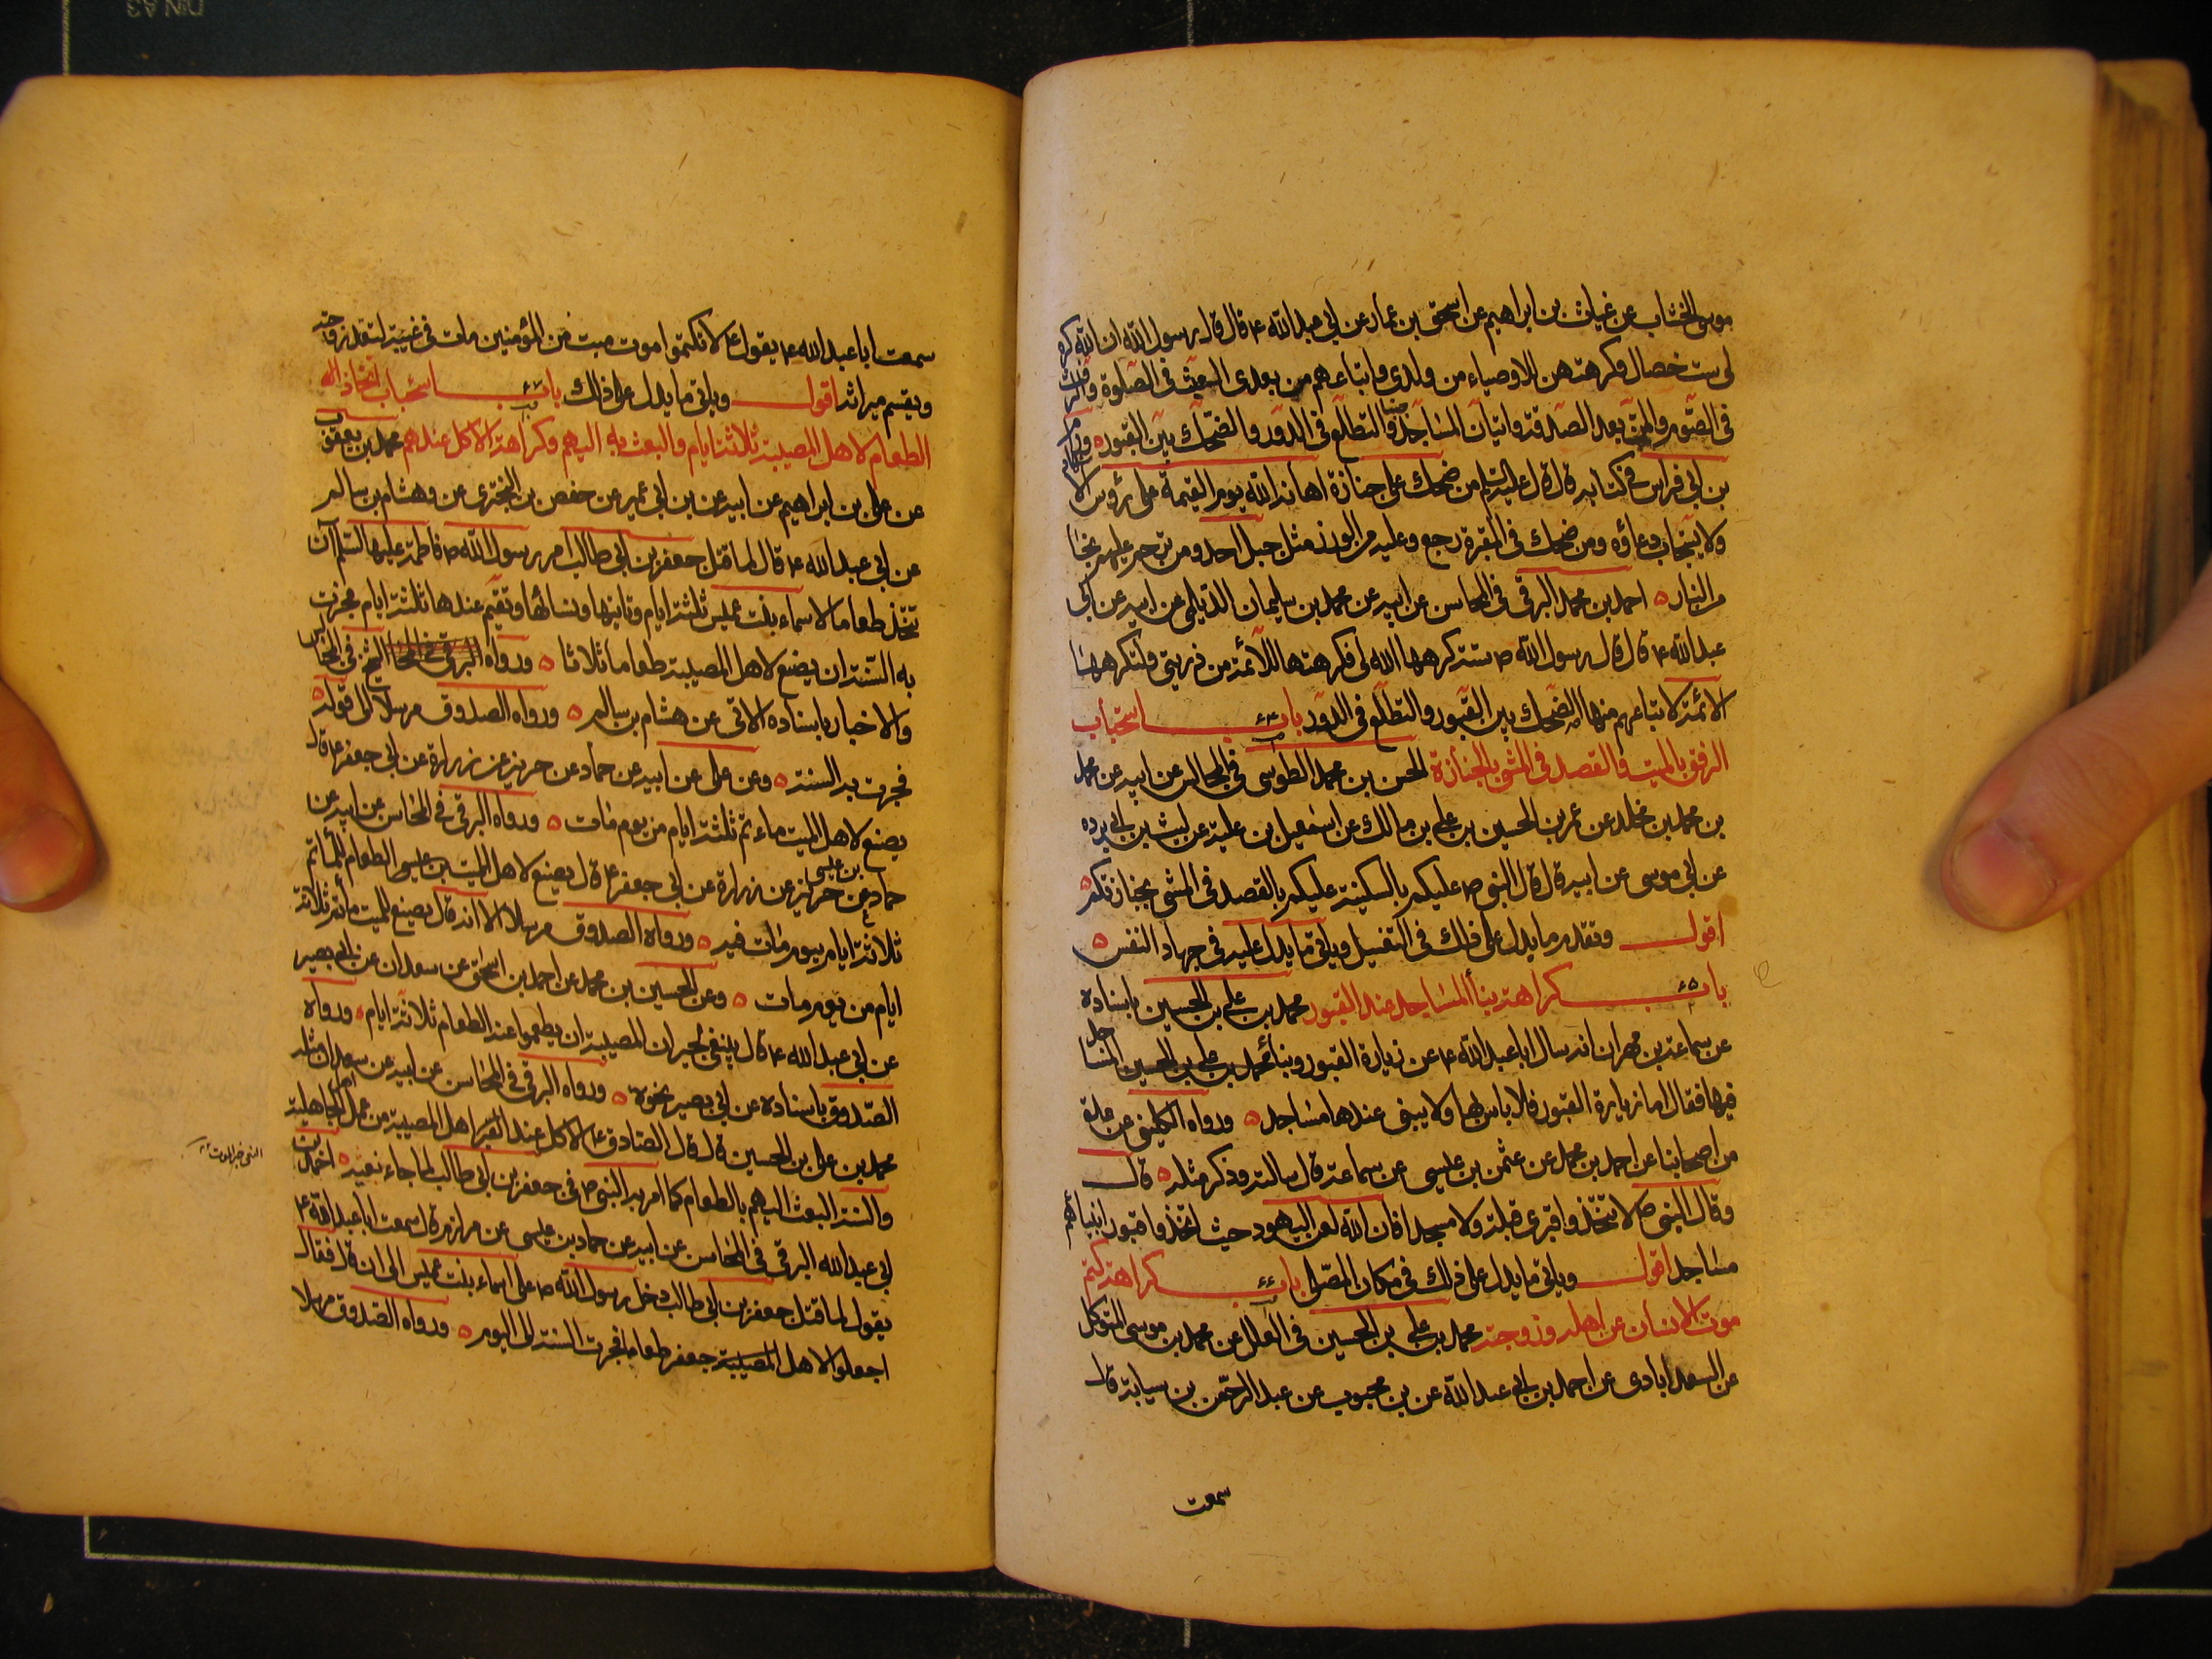 موسى الخشاب عن غياث بن ابراهيم عن اسحق بن عمار عن ابى عبد الله ع قال قال رسول الله ان الله كره
لى ست خصال وكرهتهن للاوصياء من ولدى واتباعهم من بعدى العبث فى الصلوة والرفث
فى الصوم والمن بعد الصدقة واتيان المساجد جنبا والتطلع فى الدور والضحك بين القبور ورام
بن ابى فراس فى كتابه قال قال عليه السلام من ضحك على جنازة اهانه الله يوم القيمة على رؤوس الا
ولا يستجاب دعاؤه ومن ضحك فى المقبرة رجع وعليه من الوزر مثل جبل احد ومن ترحم عليهم نجا
من النار احمد بن محمد البرقى فى المحاسن عن ابيه عن محمد بن سليمان الديلمى عن ابيه عن ابى
عبد الله ع قال قال رسول الله ص ستة كرهها الله لى فكرهتها للائمة من ذريتى ولتكرهها
الائمة لاتباعهم منها الضحك بين القبور والتطلع فى الدور باب استحباب
الرفق بالميت والقصد فى المشى بالجنازة الحسن بن محمد الطوسى فى المجالس عن ابيه عن محمد
بن محمد بن مخلد عن عمر بن الحسين بن على بن مالك عن اسمعيل بن علية عن ليث بن ابى برده
عن ابى موسى عن ابيه قال قال النبى ص عليكم بالسكينة عليكم بالقصد فى المشى بجنازتكم
اقول وتقدم ما يدل على ذلك فى التغسيل وياتى ما يدل عليه فى جهاد النفس
باب كراهة بناء المساجد عند القبور محمد بن على بن الحسين باسناده
عن سماعة بن مهران انه سال ابا عبد الله ع عن زيارة القبور وبناء محمد بن على بن الحسين المساجد
فيها فقال اما زيارة القبور فلا باس بها ولا يبنى عندها مساجد ورواه الكلينى عن عدة
من اصحابنا عن احمد بن محمد عن عثمن بن عيسى عن سماعة قال سالته وذكر مثله قال
وقال النبى ص لا تتخذوا قبرى قبلة ولا مسجدا فان الله لعن اليهود حيث اتخذوا قبور انبيائهم
مساجد اقول وياتى ما يدل على ذلك فى مكان المصلى باب كراهة كتم
موت الانسان عن اهله وزوجته محمد بن على بن الحسين فى العلل عن محمد بن موسى المتوكل
عن السعدابادى عن احمد بن ابى عبد الله عن بن محبوب عن عبد الرحمن بن سيابة قال
سمعت
سمعت ابا عبد الله ع يقول لا تكتموا موت ميت من المؤمنين مات فى غيبته لتعتد زوجته
ويقسم ميراثه اقول وياتى ما يدل على ذلك باب استحباب اتخاذ
الطعام لاهل المصيبة ثلاثة ايام والبعث به اليهم وكراهة الاكل عندهم محمد بن يعقوب
عن على بن ابراهيم عن ابيه عن بن ابى عمير عن حفص بن البخترى عن وهشام بن سالم
عن ابى عبد الله ع قال لما قتل جعفر بن ابى طالب امر رسول الله ص فاطمة عليها السلم ان
تتخذ طعاما لاسماء بنت عميس ثلثة ايام وتاتيها ونسائها وتقيم عندها ثلثة ايام فجرت
به السنة ان يصنع لاهل المصيبة طعاما ثلاثا ورواه الشيخ فى المجالس
والاخبار باسناده الاتى عن هشام بن سالم ورواه الصدوق مرسلا الى قوله
فجرت به السنة وعن على عن ابيه عن حماد عن حريز عن زرارة عن ابى جعفر ع قال
يصنع لاهل الميت ماءتم ثلثة ايام من يوم مات ورواه البرقى فى المحاسن عن ابيه عن
حماد بن عيسى عن حريز عن زرارة عن ابى جعفر ع قال يصنع لاهل الميت الطعام للمأتم
ثلاثة ايام بيوم مات فيه ورواه الصدوق مرسلا الا انه قال يصنع للميت مأتم ثلاثة
ايام من يوم مات وعن الحسين بن محمد عن احمد بن اسحق عن سعدان عن ابى بصير
عن ابى عبد الله ع قال ينبغى لجيران المصيبة ان يطعموا عنه الطعام ثلاثة ايام ورواه
الصدوق باسناده عن ابى بصير نحوه ورواه البرقى فى المحاسن عن ابيه عن سعدان مثله
محمد بن على بن الحسين قال قال الصادق ع الاكل عند اهل المصيبة من عمل اهل الجاهلية
والسنة البعث اليهم بالطعام كما امر به النبى ص فى جعفر بن ابى طالب لما جاء نعيه احمد بن
ابى عبد الله البرقى فى المحاسن عن ابيه عن حماد بن عيسى عن مرازم قال سمعت ابا عبد الله ع
يقول لما قتل جعفر بن ابى طالب دخل رسول الله ص على اسماء بنت عميس الى ان قال فقال
اجعلوا لاهل المصيبة جعفر طعاما فجرت السنة الى اليوم ورواه الصدوق مرسلا